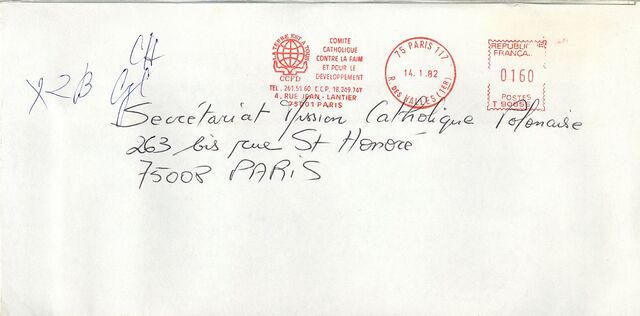 LA TERRE EST A TOUS
CCFD
COMITÉ
CATHOLIQUE
CONTRE LA FAIM
ET POUR LE
DÉVELOPPEMENT
TEL. 261.51.60 C.C.P. 18.249.74Y
4, RUE JEAN-LANTIER
75001 PARIS
75 PARIS 117
14.1.82
R. DES HALLES (1ER)
REPUBLIQUE
FRANCAISE
0160
POSTES
CH
X2B
Secrétariat Mission Catholique Polonaise
263 bis rue St Honoré
75008 PARIS